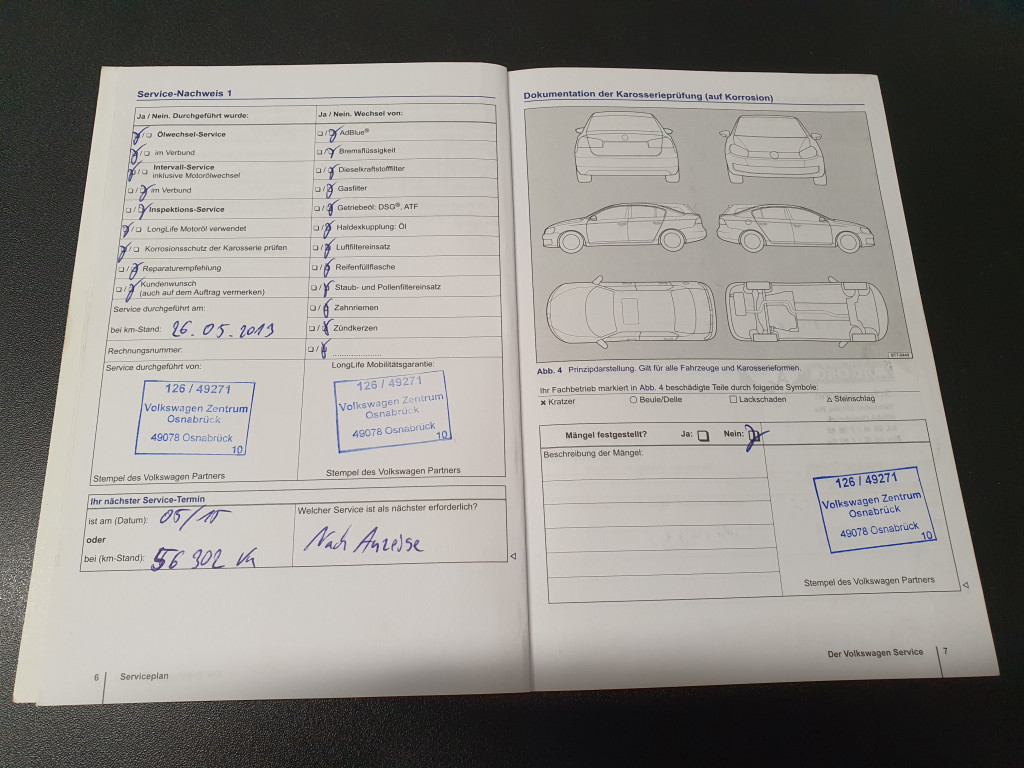 Service-Nachweis 1
Ja / Nein. Durchgeführt wurde:
Ölwechsel-Service
im Verbund
Intervall-Service
inklusive Motorölwechsel
im Verbund
Inspektions-Service
LongLife Motoröl verwendet
Korrosionsschutz der Karosserie prüfen
Reparaturempfehlung
Kundenwunsch
(auch auf dem Auftrag vermerken)
Service durchgeführt am:
bei km-Stand: 26.05.2013
Rechnungsnummer:
Service durchgeführt von:
126 / 49271
Volkswagen Zentrum
Osnabrück
49078 Osnabrück
10
Stempel des Volkswagen Partners
Ja / Nein. Wechsel von:
AdBlue®
Bremsflüssigkeit
Dieselkraftstofffilter
Gasfilter
Getriebeöl: DSG®, ATF
Haldexkupplung: Öl
Luftfiltereinsatz
Reifenfüllflasche
Staub- und Pollenfiltereinsatz
Zahnriemen
Zündkerzen
LongLife Mobilitätsgarantie:
126 / 49271
Volkswagen Zentrum
Osnabrück
49078 Osnabrück
10
Stempel des Volkswagen Partners
Ihr nächster Service-Termin
ist am (Datum): 05/15
oder
bei (km-Stand): 56 302 km
Welcher Service ist als nächster erforderlich?
Nach Anzeige
6 Serviceplan
Dokumentation der Karosserieprüfung (auf Korrosion)
Abb. 4 Prinzipdarstellung. Gilt für alle Fahrzeuge und Karosserieformen.
Ihr Fachbetrieb markiert in Abb. 4 beschädigte Teile durch folgende Symbole:
× Kratzer ○ Beule/Delle □ Lackschaden △ Steinschlag
Mängel festgestellt? Ja: Nein:
Beschreibung der Mängel:
126 / 49271
Volkswagen Zentrum
Osnabrück
49078 Osnabrück
10
Stempel des Volkswagen Partners
Der Volkswagen Service 7